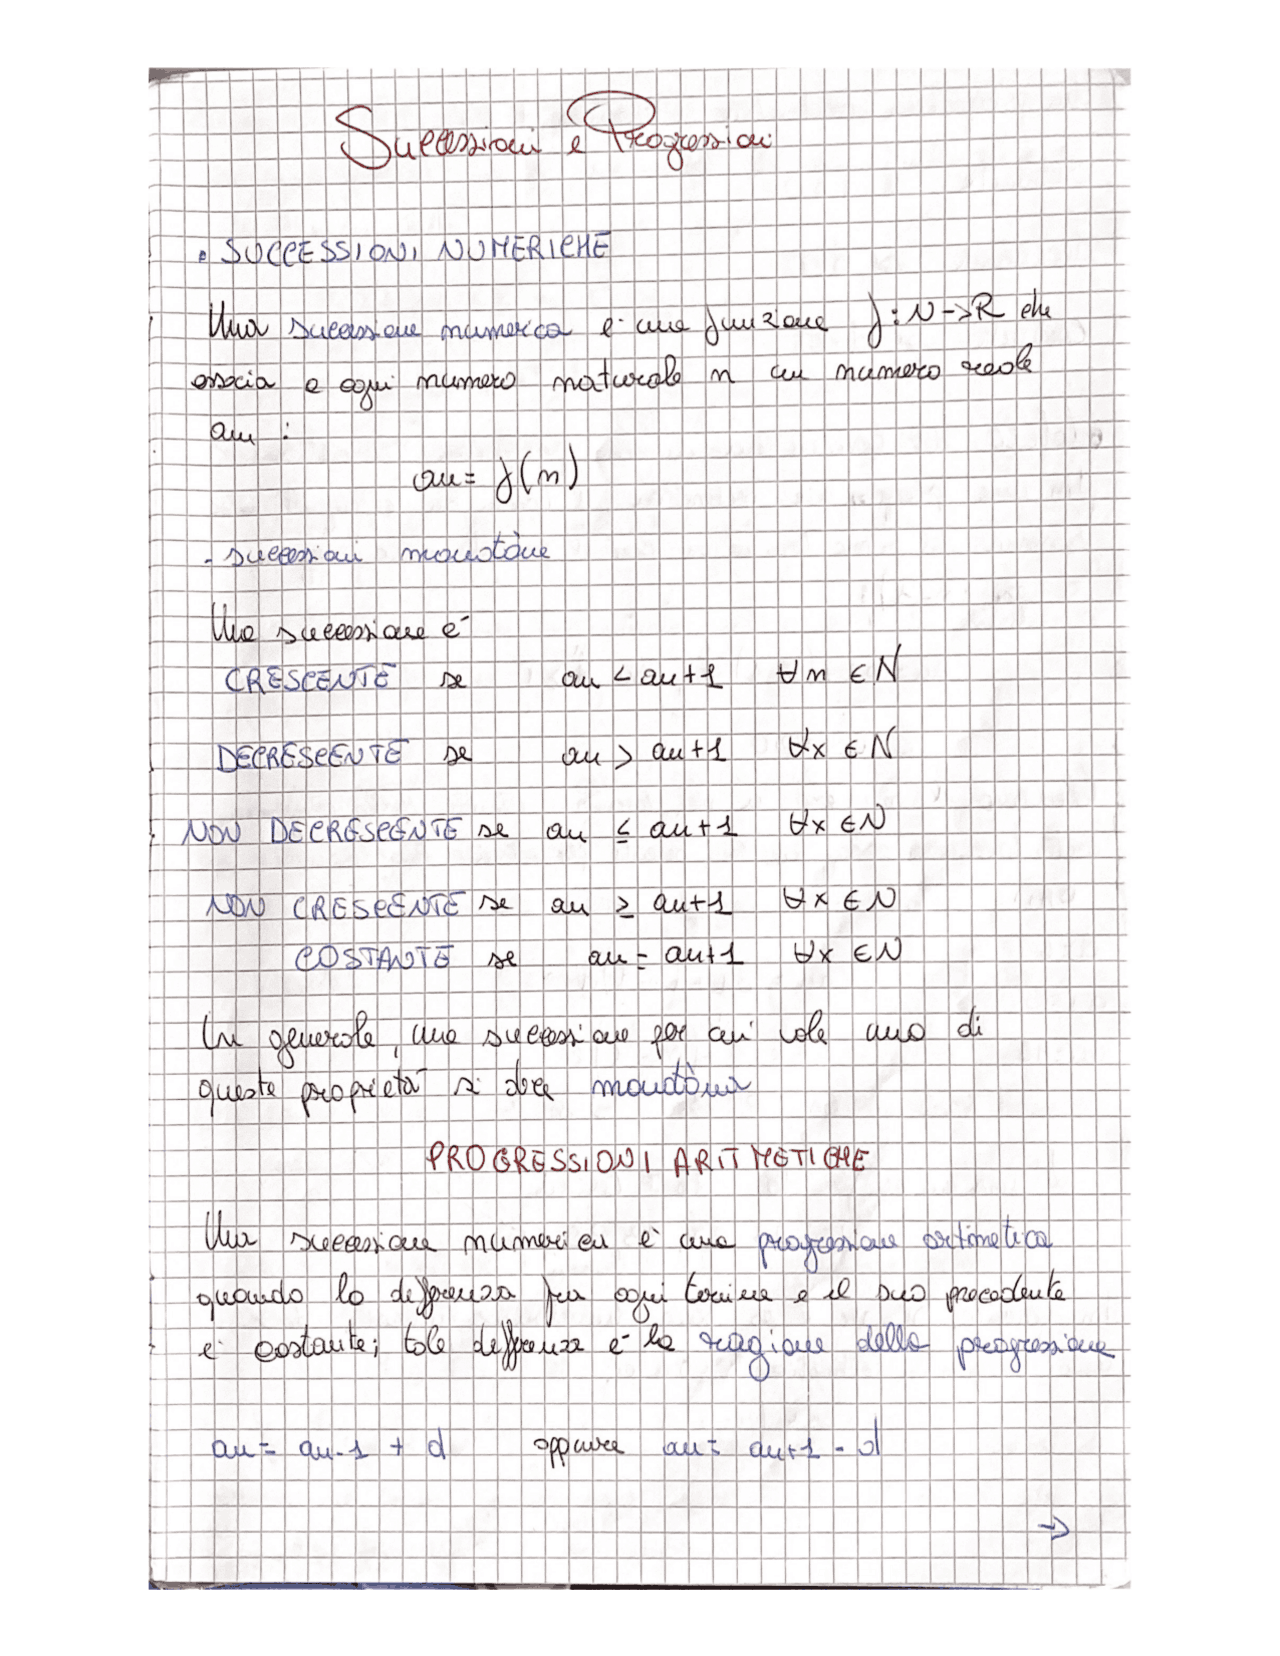 Successioni e Progressioni
• SUCCESSIONI NUMERICHE
Una successione numerica è una funzione f: N->R che
associa a ogni numero naturale n un numero reale
an :
an = f(n)
- successioni monotòne
Una successione è
CRESCENTE se an < an+1 ∀n ∈ N
DECRESCENTE se an > an+1 ∀x ∈ N
NON DECRESCENTE se an ≤ an+1 ∀x ∈ N
NON CRESCENTE se an ≥ an+1 ∀x ∈ N
COSTANTE se an = an+1 ∀x ∈ N
In generale, una successione per cui vale una di
queste proprietà si dice monotòna
PROGRESSIONI ARITMETICHE
Una successione numerica è una progressione aritmetica
quando la differenza fra ogni termine e il suo precedente
è costante; tale differenza è la ragione della progressione
an = an-1 + d oppure an = an+1 - d
->